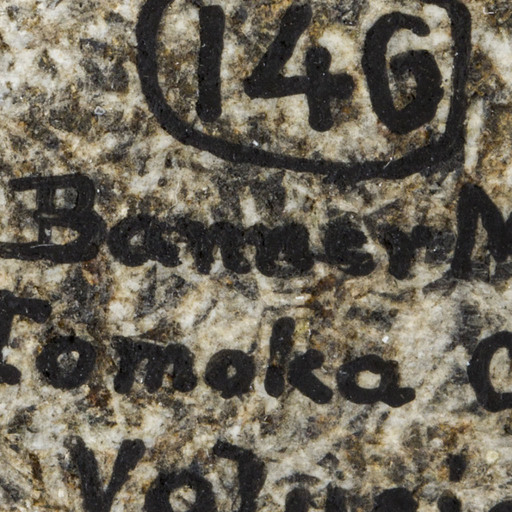 146
Banner M
Tomoka C
Volusi